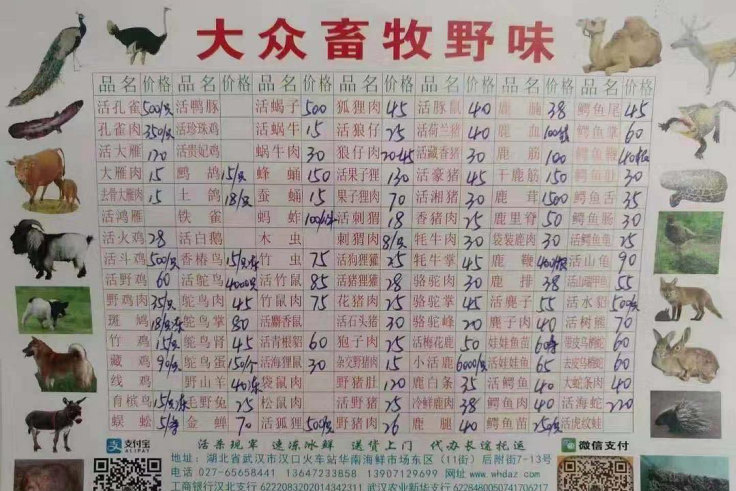 大众畜牧野味
品名 价格 品名 价格 品名 价格 品名 价格 品名 价格 品名 价格 品名 价格
活孔雀 500/只 活鸭豚 活蝎子 500 狐狸肉 45 活豚鼠 40 鹿脯 38 鳄鱼尾 45
孔雀肉 350/只 活珍珠鸡 活蜗牛 15 活狼仔 25 活荷兰猪 40 鹿血 鳄鱼掌 60
活大雁 120 活贵妃鸡 蜗牛肉 30 狼仔肉 20-45 活藏香猪 30 鹿筋 100 鳄鱼
大雁肉 15 鹧鸪 15/只 蜂蛹 150 活果子狸 130 活豪猪 45 干鹿筋 150 鳄鱼肚 30
去骨大雁肉 15 土鸽 18/只 蚕蛹 15 果子狸肉 70 活湘猪 30 鹿茸 1500 鳄鱼舌 35
活鸿雁 铁雀 蚂蚱 活刺猬 18 香猪肉 25 鹿里脊 50 鳄鱼肠 30
活火鸡 28 活白鹅 木虫 刺猬肉 8/只 牦牛肉 30 袋装鹿肉 30 鳄鱼 25
活斗鸡 500/只 香椿鸟 竹虫 75 活狗獾 25 牦牛掌 45 鹿鞭 活山龟 90
活野鸡 60 活鸵鸟 4000/只 活竹鼠 85 活猪獾 28 骆驼肉 30 鹿排 38 55
野鸡肉 35/只 鸵鸟肉 45 竹鼠肉 75 花猪肉 25 骆驼掌 45 活麂子 55 活水貂 500/只
斑鸠 鸵鸟掌 80 活麝香鼠 活石头猪 30 骆驼峰 20 麂子肉 40 活树熊 70
竹鸡 15/只 鸵鸟肾 45 活青根貂 60 狍子肉 25 活梅花鹿 50 娃娃鱼苗 带皮乌梢蛇 60
藏鸡 90/只 鸵鸟蛋 150/个 活海狸鼠 30 杂交野猪肉 15 小活鹿 6000/只 活娃娃鱼 65 去皮乌梢蛇 60
线鸡 野山羊 袋鼠肉 野猪肚 120 鹿白条 35 活鳄鱼 40 大蛇条肉 40
育槟鸟 毛野兔 25 松鼠肉 活野猪 25 冷鲜鹿肉 38 鳄鱼肉 40 活海蛇 220
蜈蚣 金蝉 70 活狐狸 500/只 野猪肉 26 鹿腿 40 鳄鱼苗 250/只 活虎纹蛙
支付宝 ALIPAY 活杀现宰 速冻冰鲜 送货上门 代办长途托运 微信支付
地址:湖北省武汉市汉口火车站华南海鲜市场东区(11街)后附街7-13号
电话 027-65658441 13647233858 13907129699 网址 www.whdaz.com
工商银行汉北支行 6222083202014342311 武汉农业新华支行 6228480050741706217